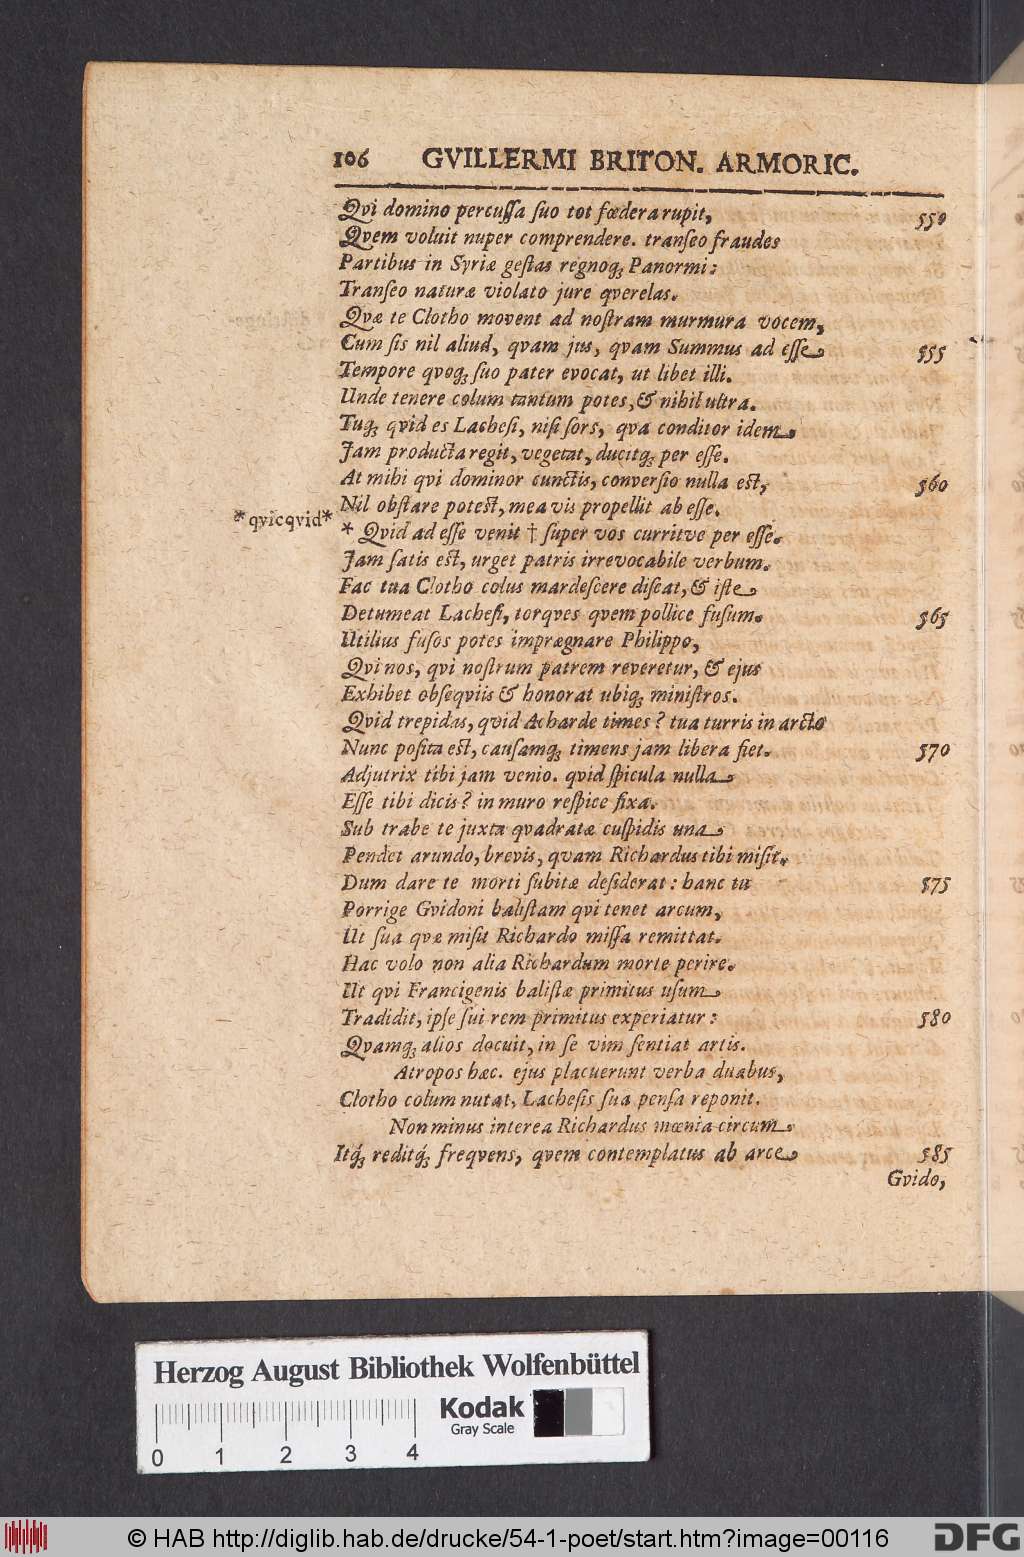 106 GVILLERMI BRITON. ARMORIC.
Qvi domino percussa suo tot fœdera rupit, 550
Qvem voluit nuper comprendere. transeo fraudes
Partibus in Syriæ gestas regnoq; Panormi:
Transeo naturæ violato jure qverelas.
Qvæ te Clotho movent ad nostram murmura vocem,
Cum sis nil aliud, qvam jus, qvam Summus ad esse 555
Tempore qvoq; suo pater evocat, ut libet illi.
Unde tenere colum tantum potes, & nihil ultra.
Tuq; qvid es Lachesi, nisi sors, qva conditor idem
Jam producta regit, vegetat, ducitq; per esse.
At mihi qvi dominor cunctis, conversio nulla est, 560
Nil obstare potest, mea vis propellit ab esse.
*qvicqvid* * Qvid ad esse venit † super vos curritve per esse.
Jam satis est, urget patris irrevocabile verbum.
Fac tua Clotho colus mardescere discat, & iste
Detumeat Lachesi, torqves qvem pollice fusum. 565
Utilius fusos potes imprægnare Philippo,
Qvi nos, qvi nostrum patrem reveretur, & ejus
Exhibet obseqviis & honorat ubiq; ministros.
Qvid trepidas, qvid Acharde times? tua turris in arcto
Nunc posita est, causamq; timens jam libera fiet. 570
Adjutrix tibi jam venio. qvid spicula nulla
Esse tibi dicis? in muro respice fixa.
Sub trabe te juxta qvadratæ cuspidis una
Pendet arundo, brevis, qvam Richardus tibi misit.
Dum dare te morti subitæ desiderat: hanc tu 575
Porrige Gvidoni balistam qvi tenet arcum,
Ut sua qvæ misit Richardo missa remittat.
Hac volo non alia Richardum morte perire.
Ut qvi Francigenis balistæ primitus usum
Tradidit, ipse sui rem primitus experiatur: 580
Qvamq; alios docuit, in se vim sentiat artis.
Atropos hæc. ejus placuerunt verba duabus,
Clotho colum nutat, Lachesis sua pensa reponit.
Non minus interea Richardus mœnia circum
Itq; reditq; freqvens, qvem contemplatus ab arce 585
Gvido,
Herzog August Bibliothek Wolfenbüttel
Kodak
Gray Scale
0 1 2 3 4
© HAB http://diglib.hab.de/drucke/54-1-poet/start.htm?image=00116
DFG